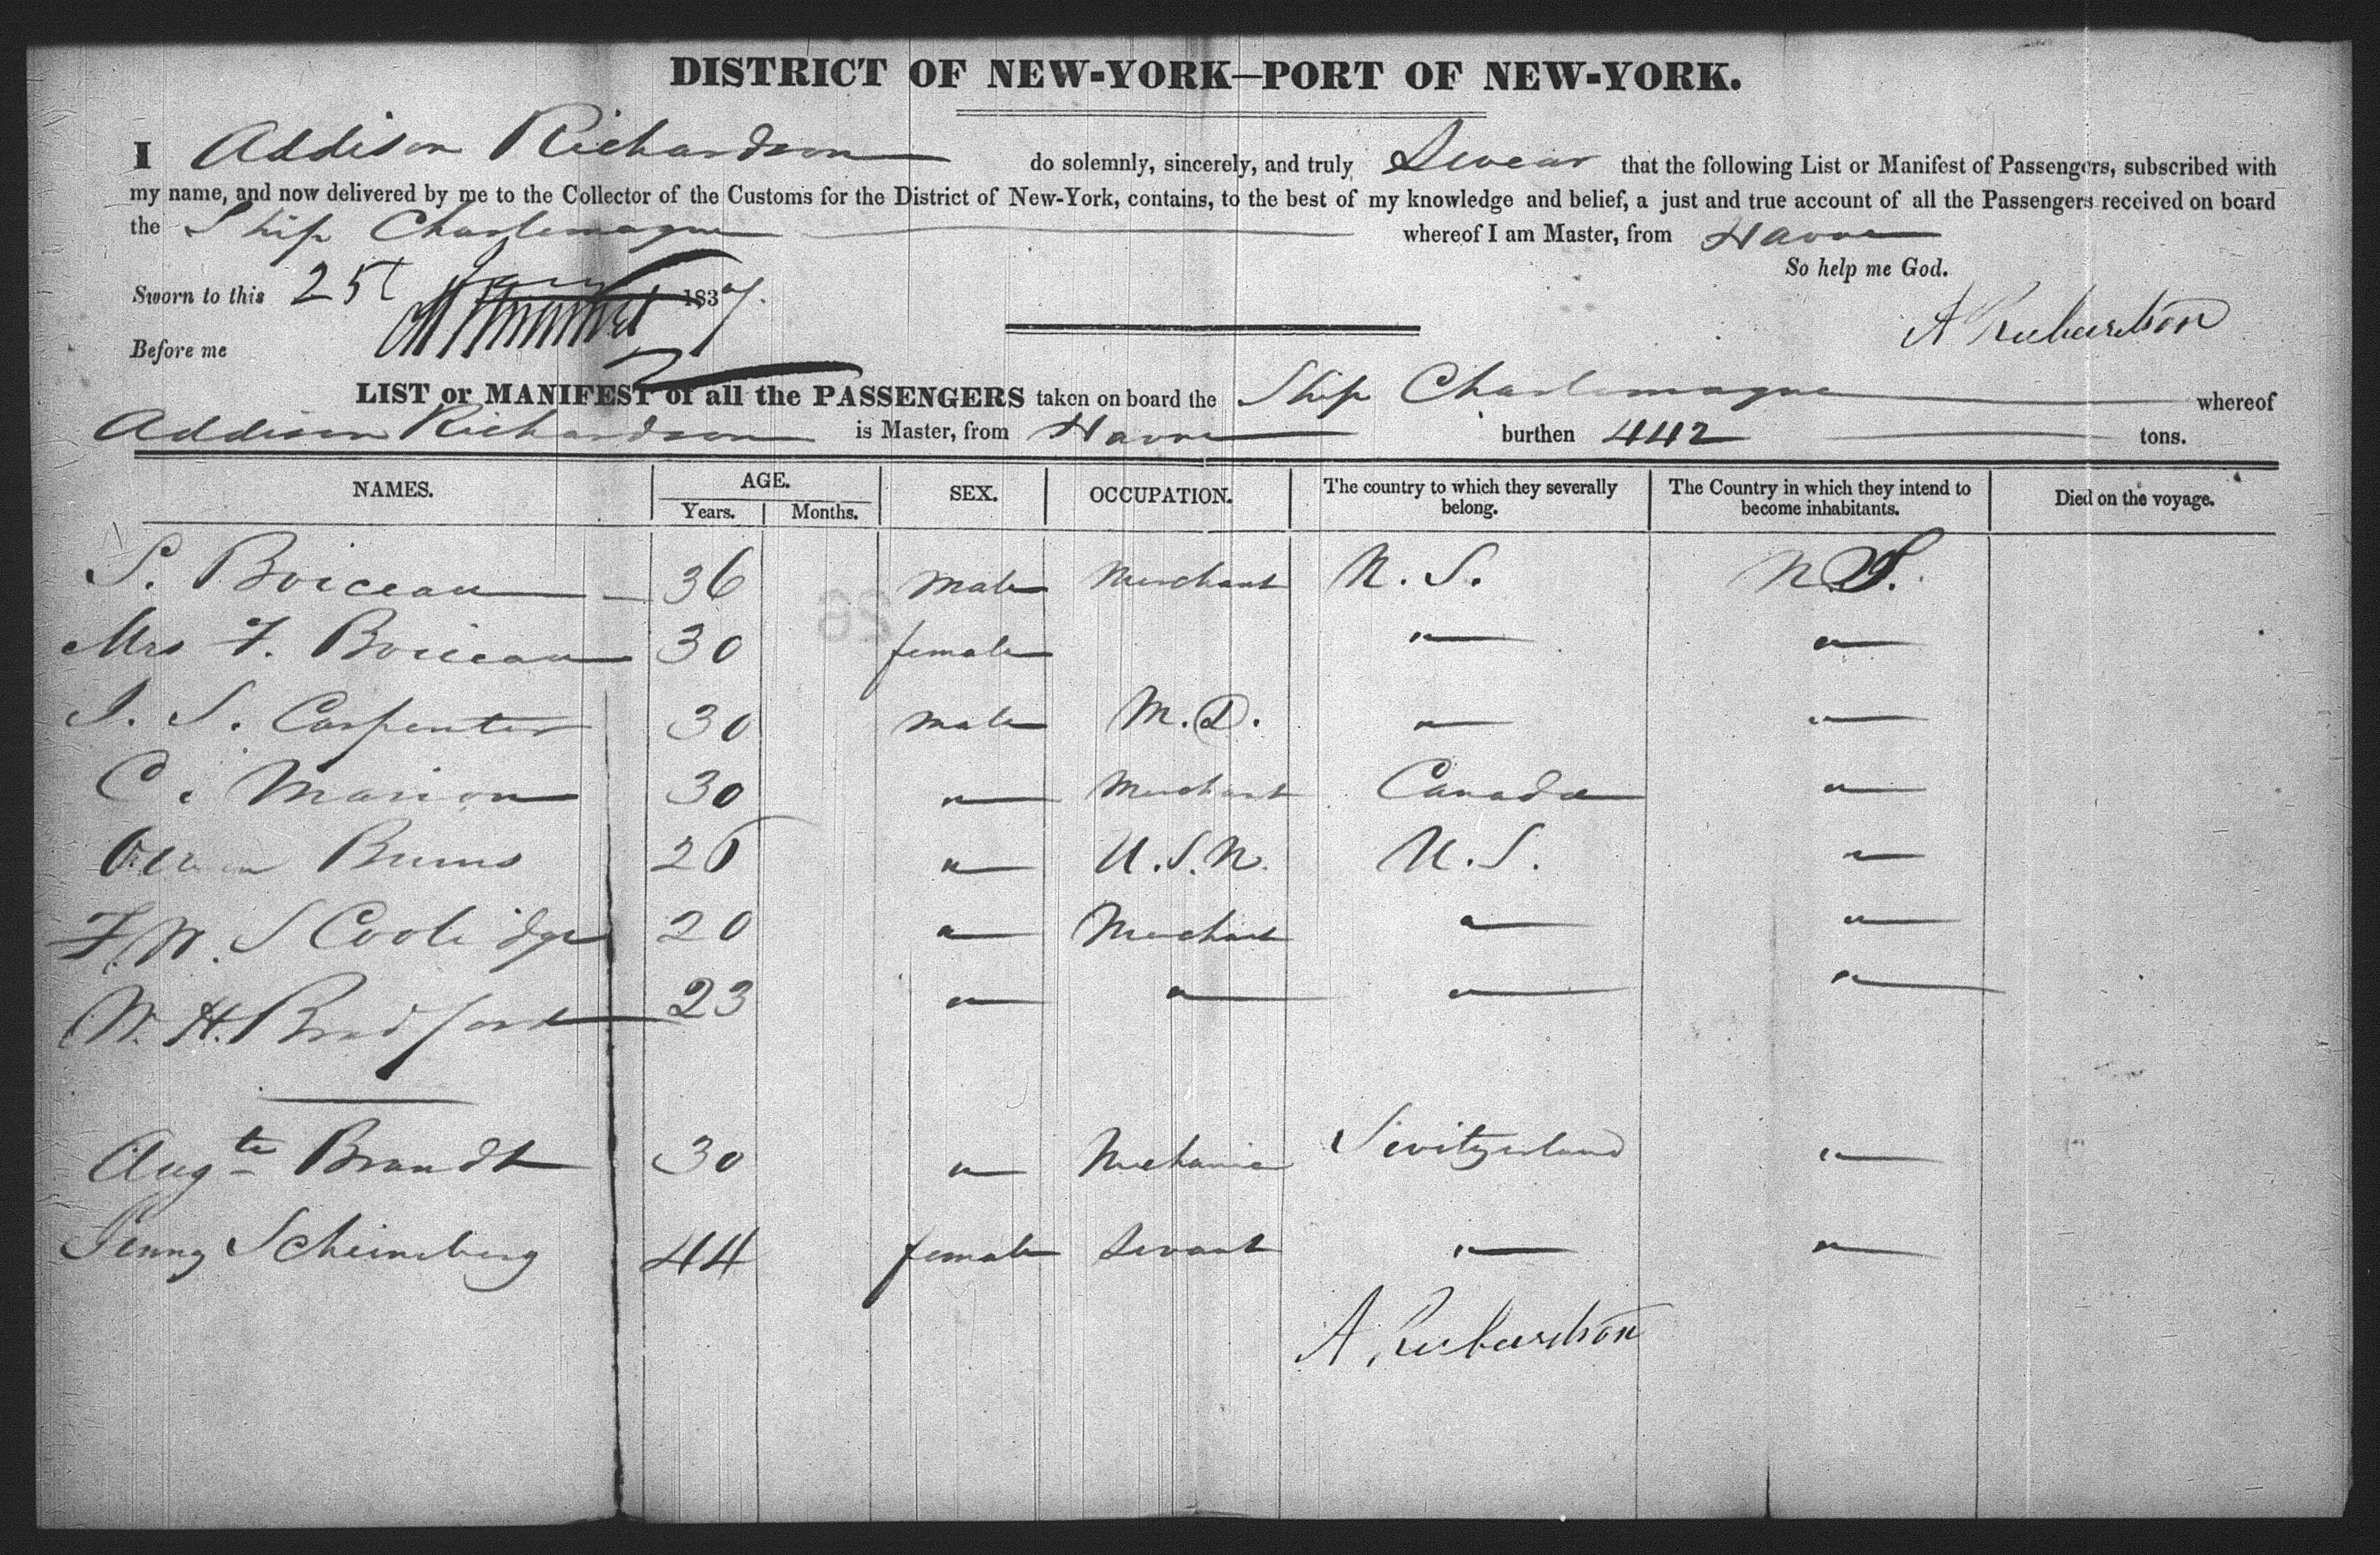 DISTRICT OF NEW-YORK—PORT OF NEW-YORK.
I Addison Richardson do solemnly, sincerely, and truly Swear that the following List or Manifest of Passengers, subscribed with
my name, and now delivered by me to the Collector of the Customs for the District of New-York, contains, to the best of my knowledge and belief, a just and true account of all the Passengers received on board
the Ship Charlemagne whereof I am Master, from Havre
So help me God.
Sworn to this 25t Jany 1837.
A Richardson
Before me
LIST or MANIFEST of all the PASSENGERS taken on board the Ship Charlemagne whereof
Addison Richardson is Master, from Havre burthen 442 tons.
NAMES. AGE. SEX. OCCUPATION. The country to which they severally belong. The Country in which they intend to become inhabitants. Died on the voyage.
Years. Months.
S. Boiceau 36 male Merchant U. S. U.S.
Mrs F. Boiceau 30 female " "
J. S. Carpenter 30 male M.D. " "
C. Marion 30 " Merchant Canada "
Burns 26 " U.S.N. U.S. "
F. W. S Coolidge 20 " Merchant " "
W. H. Bradford 23 " " " "
Augte Brandt 30 " Mechanic Switzerland "
Jenny Scheinsberg 44 female Servant " "
A. Richardson